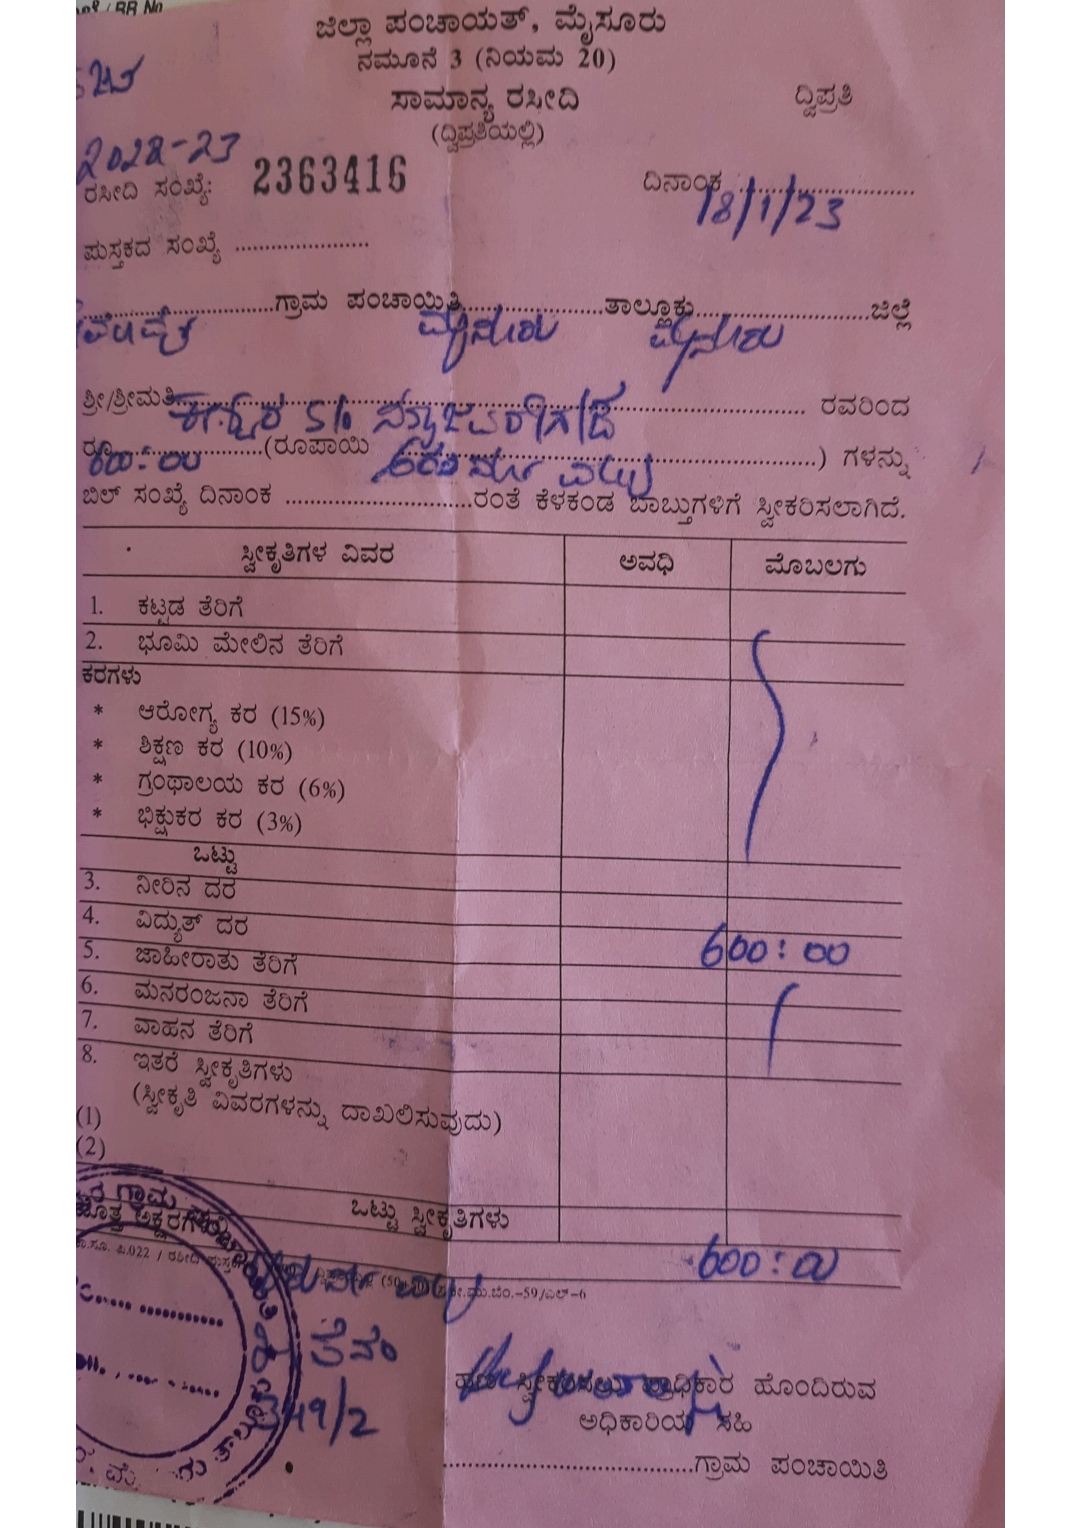 ಜಿಲ್ಲಾ ಪಂಚಾಯತ್, ಮೈಸೂರು
ನಮೂನೆ 3 (ನಿಯಮ 20)
ಸಾಮಾನ್ಯ ರಸೀದಿ ದ್ವಿಪ್ರತಿ
(ದ್ವಿಪ್ರತಿಯಲ್ಲಿ)
ರಸೀದಿ ಸಂಖ್ಯೆ: 2363416 ದಿನಾಂಕ 18/1/23
ಪುಸ್ತಕದ ಸಂಖ್ಯೆ ....................
ಗ್ರಾಮ ಪಂಚಾಯಿತಿ ಮೈಸೂರು ತಾಲ್ಲೂಕು ಮೈಸೂರು ಜಿಲ್ಲೆ
ಶ್ರೀ/ಶ್ರೀಮತಿ S/o ರವರಿಂದ
ರೂ 600:00 (ರೂಪಾಯಿ ) ಗಳನ್ನು
ಬಿಲ್ ಸಂಖ್ಯೆ ದಿನಾಂಕ ............................ರಂತೆ ಕೆಳಕಂಡ ಬಾಬ್ತುಗಳಿಗೆ ಸ್ವೀಕರಿಸಲಾಗಿದೆ.
ಸ್ವೀಕೃತಿಗಳ ವಿವರ ಅವಧಿ ಮೊಬಲಗು
1. ಕಟ್ಟಡ ತೆರಿಗೆ
2. ಭೂಮಿ ಮೇಲಿನ ತೆರಿಗೆ
ಕರಗಳು
* ಆರೋಗ್ಯ ಕರ (15%)
* ಶಿಕ್ಷಣ ಕರ (10%)
* ಗ್ರಂಥಾಲಯ ಕರ (6%)
* ಭಿಕ್ಷುಕರ ಕರ (3%)
ಒಟ್ಟು
3. ನೀರಿನ ದರ
4. ವಿದ್ಯುತ್ ದರ 600:00
5. ಜಾಹೀರಾತು ತೆರಿಗೆ
6. ಮನರಂಜನಾ ತೆರಿಗೆ
7. ವಾಹನ ತೆರಿಗೆ
8. ಇತರೆ ಸ್ವೀಕೃತಿಗಳು
(ಸ್ವೀಕೃತಿ ವಿವರಗಳನ್ನು ದಾಖಲಿಸುವುದು)
(1)
(2)
ಒಟ್ಟು ಸ್ವೀಕೃತಿಗಳು 600:00
ಹಣ ಸ್ವೀಕರಿಸಲು ಅಧಿಕಾರ ಹೊಂದಿರುವ
ಅಧಿಕಾರಿಯ ಸಹಿ
....................................ಗ್ರಾಮ ಪಂಚಾಯಿತಿ